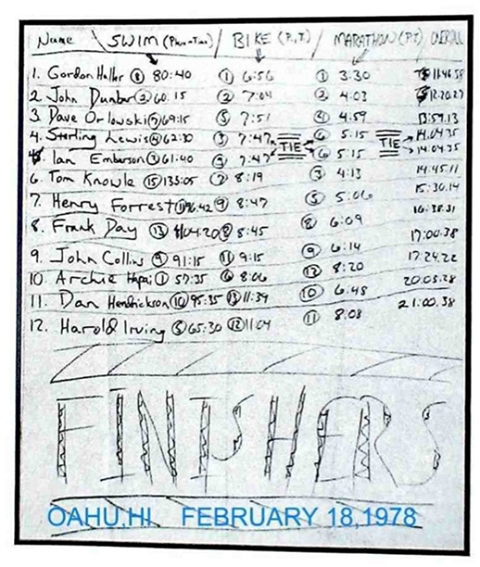 Name SWIM (Place-Time) / BIKE (P,T) / MARATHON (P,T) OVERALL
1. Gordon Haller ⑧ 80:40 ① 6:56 ① 3:30 11:46.58
2. John Dunbar ② 60:15 ② 7:04 ② 4:03 12:20.27
3. Dave Orlowski ⑦ 69:15 ⑤ 7:51 ④ 4:59 13:59.13
4. Sterling Lewis ④ 62:30 ③ 7:47 TIE ⑥ 5:15 TIE 14:04.35
5. Ian Emberson ③ 61:40 ③ 7:47 ⑥ 5:15 14:04.35
6. Tom Knowle ⑮ 133:05 ⑦ 8:19 ③ 4:13 14:45.11
7. Henry Forrest ⑪ 96:42 ⑨ 8:47 ⑤ 5:06 15:30.14
8. Frank Day ⑬ 1:04.20 ⑧ 8:45 ⑧ 6:09 16:38.31
9. John Collins ⑨ 91:15 ⑪ 9:15 ⑨ 6:14 17:00.38
10. Archie Hapai ① 57:35 ⑥ 8:06 ⑫ 8:20 17:24.22
11. Dan Hendrickson ⑩ 95:35 ⑬ 11:39 ⑩ 6:48 20:03.28
12. Harold Irving ⑤ 65:30 ⑫ 11:04 ⑪ 8:08 21:00.38
FINISHERS
OAHU,HI FEBRUARY 18,1978